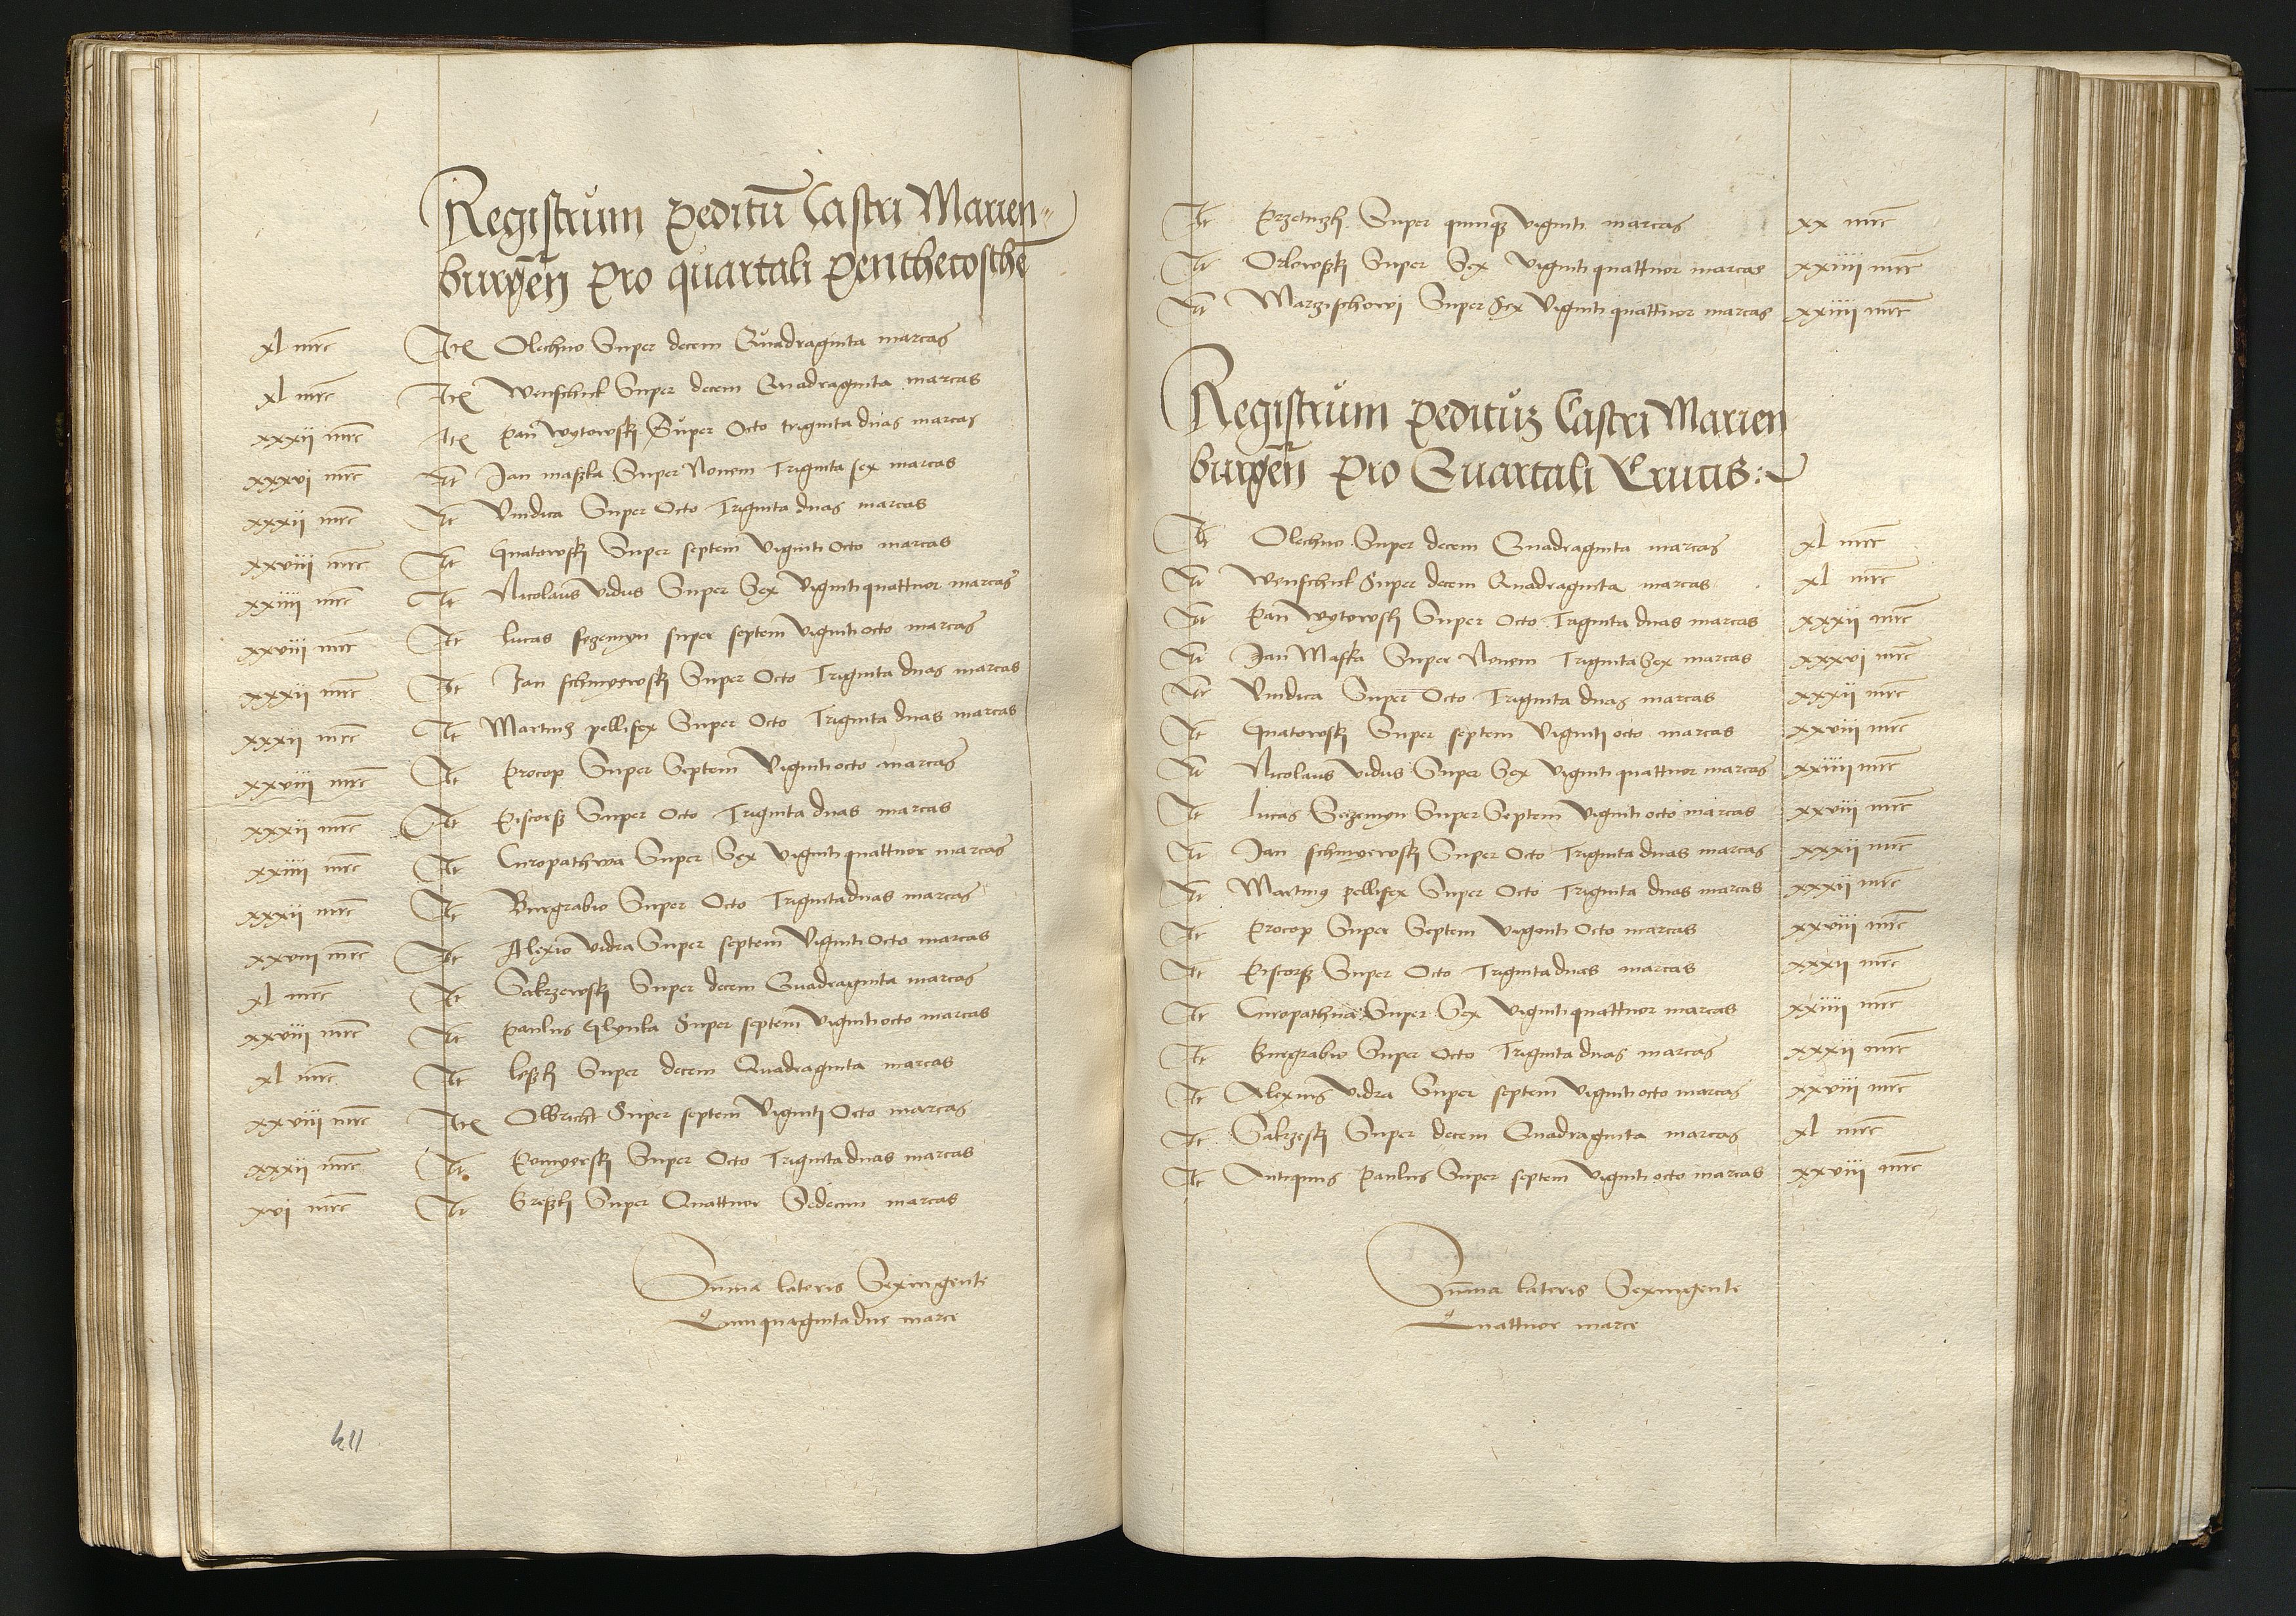 Registrum peditū Castri Marien-
burgeñ pro quartali penthecosthē
xl mrc Itē Olechno Super decem Quadraginta marcas
xl mrc Itē Wenschick Super decem Quadraginta marcas
xxxii mrc Itē pan wytowskj Super Octo triginta duas marcas
xxxvi mrc It Jan maska Super Nonem Triginta sex marcas
xxxii mrc It Vindica Super Octo Triginta duas marcas
xxviii mrc It Gnatowskj Super septem viginti Octo marcas
xxiiii mrc It Nicolaus vidus Super Sex viginti quattuor marcas
xxviii mrc It lucas sezemyn super septem viginti octo marcas
xxxii mrc It Jan schmyewskj Super Octo Triginta duas marcas
xxxii mrc It Martinus pellifex Super Octo Triginta duas marcas
xxviii mrc It procop Super Septem viginti octo marcas
xxxii mrc It piscorß Super Octo Triginta duas marcas
xxiiii mrc It Curopathwa Super Sex viginti quattuor marcas
xxxii mrc It Burgrabio Super Octo Triginta duas marcas
xxviii mrc It Alexio vidra Super septem viginti Octo marcas
xl mrc It Sakrzewskj Super decem Quadraginta marcas
xxviii mrc It paulus Glynka Super septem viginti octo marcas
xl mrc It leßkj Super decem Quadraginta marcas
xxviii mrc Itē Olbricht Super septem viginti Octo marcas
xxxii mrc It Super Octo Triginta duas marcas
xvi mrc It Greßkj Super Quattuor Sedecim marcas
Suma lateris Sexingente
Quinquaginta due marce
It Super quinque viginti marcas xx mrc
It Orlowßkj Super Sex viginti quattuor marcas xxiiii mrc
It Marzischowj Super Sex viginti quattuor marcas xxiiii mrc
Registrum peditūz Castri Marien
burgeñ pro Quartali Crucis
It Olechno Super decem Quadraginta marcas xl mrc
It Wenschick Super decem Quadraginta marcas xl mrc
It pan wytowskj Super Octo Triginta duas marcas xxxii mrc
It Jan Maska Super Nonem Triginta Sex marcas xxxvi mrc
It Vindica Super Octo Triginta duas marcas xxxii mrc
It Gnatowskj Super septem viginti octo marcas xxviii mrc
It Nicolaus vidus Super Sex viginti quattuor marcas xxiiii mrc
It lucas Sezemyn Super Septem viginti octo marcas xxviii mrc
It Jan schmyewskj Super Octo Triginta duas marcas xxxii mrc
It Martinus pellifex Super Octo Triginta duas marcas xxxii mrc
It procop Super Septem viginti Octo marcas xxviii mrc
It piscorß Super Octo Triginta duas marcas xxxii mrc
It Curopathua Super Sex viginti quattuor marcas xxiiii mrc
It Burgrabio Super Octo Triginta duas marcas xxxii mrc
It Alexius vidra Super septem viginti octo marcas xxviii mrc
It Sakrzeskj Super decem Quadraginta marcas xl mrc
It Antiquus paulus Super septem viginti octo marcas xxviii mrc
Suma lateris Sexingente
Quattuor marce